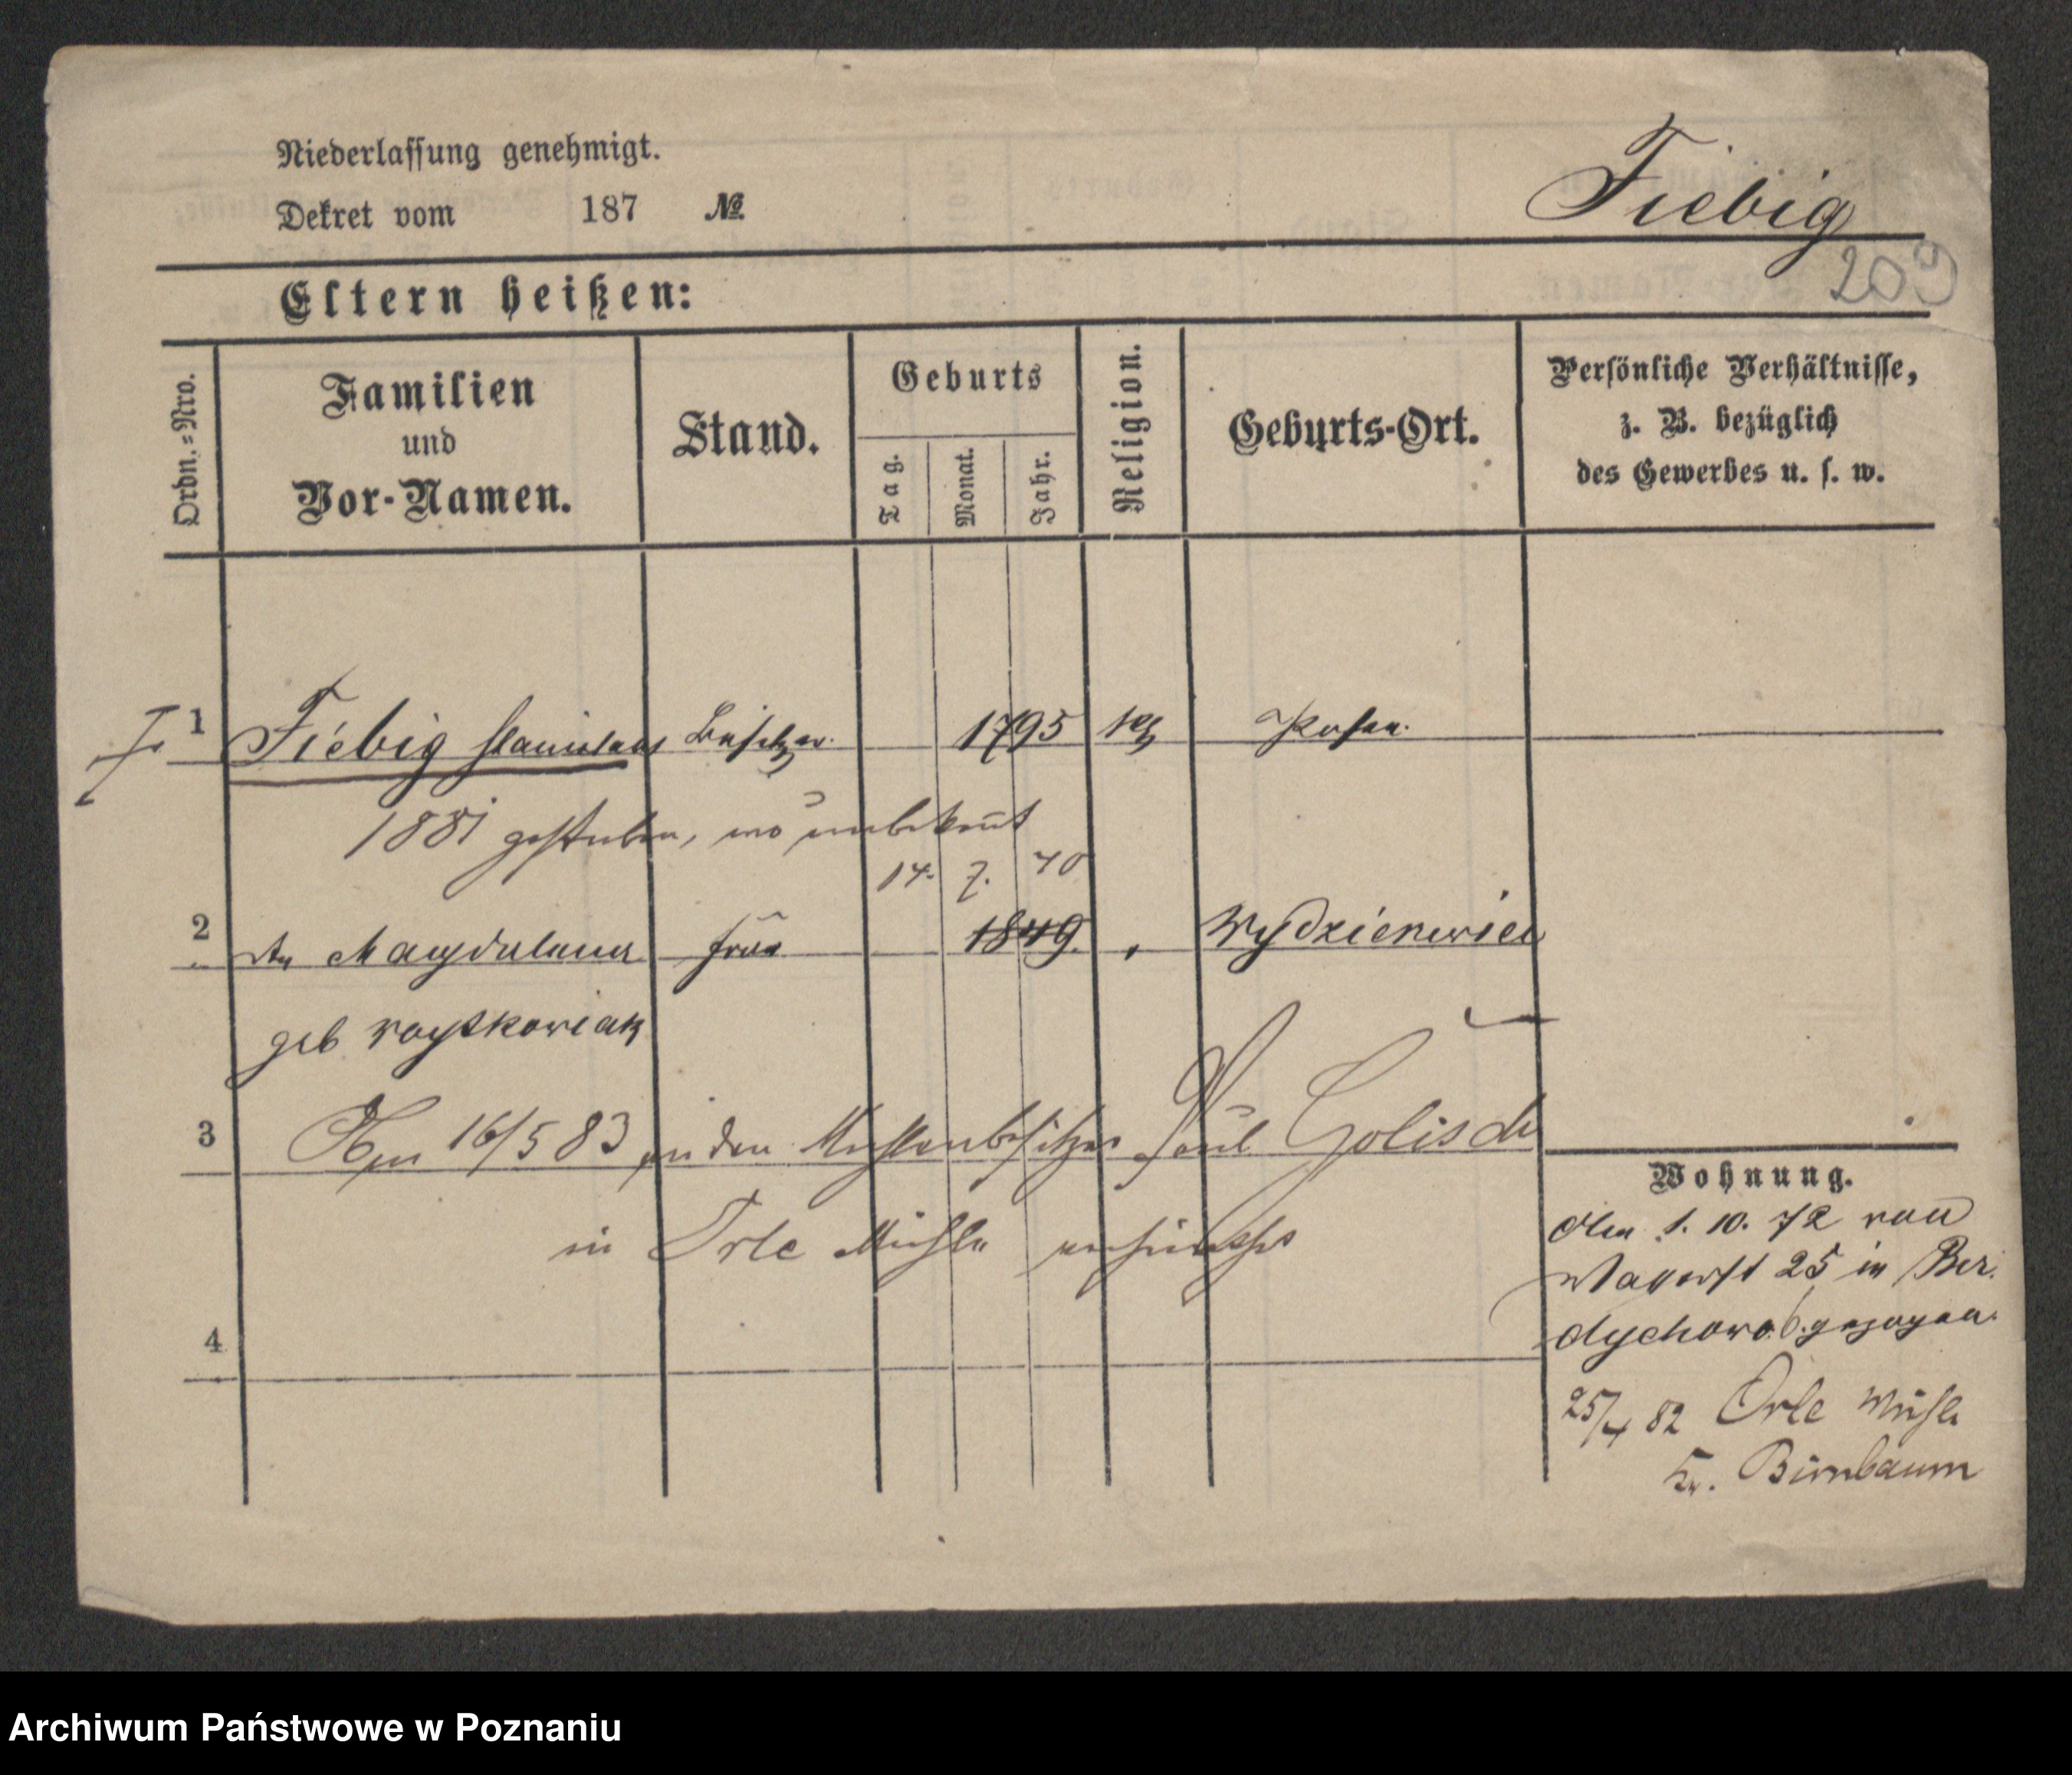 Niederlassung genehmigt.
Dekret vom 187 №
Fiebig
209
Eltern heißen:
Ordn.=Nro.
Familien
und
Vor-Namen.
Stand.
Geburts
Tag.
Monat.
Jahr.
Religion.
Geburts-Ort.
Persönliche Verhältnisse,
z. B. bezüglich
des Gewerbes u. s. w.
1 Fiebig Stanislaus Besitzer. 1795 Posen.
1881 gestorben, wo unbekannt
14. 7. 40
2 Magdalena Frau 1849.
geb
3 16/5 83 an den Mühlenbesitzer Paul Golisch
in Orle Mühle
4
Wohnung.
Den 1. 10. 72 von
25 in Ber
dychowo 6. gezogen.
25/4 82 Orle Mühle
Kr. Birnbaum
Archiwum Państwowe w Poznaniu